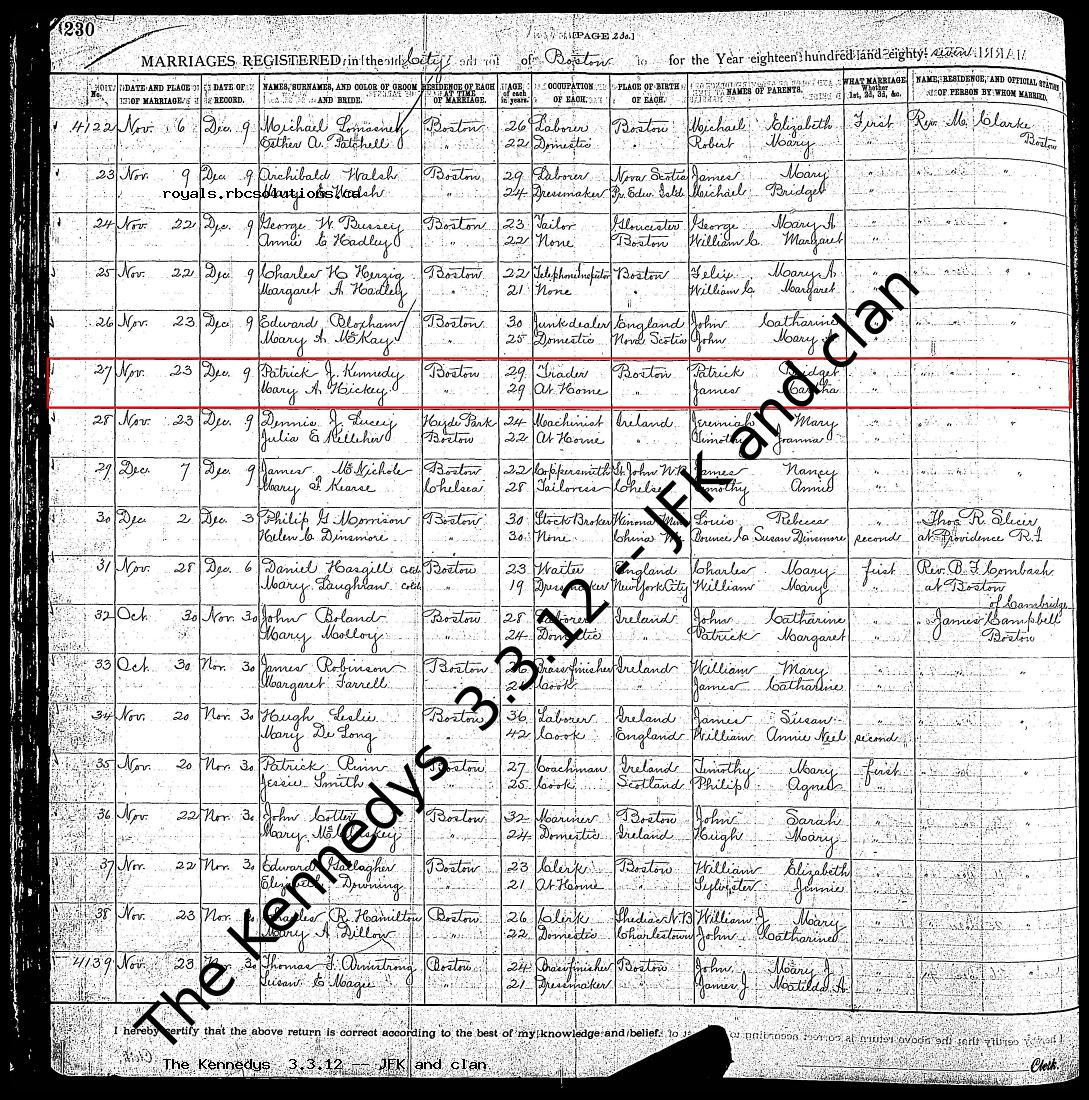 230
[PAGE 230.]
MARRIAGES REGISTERED in the City of Boston for the Year eighteen hundred and eighty-seven
No. DATE AND PLACE OF MARRIAGE. DATE OF RECORD. NAMES, SURNAMES, AND COLOR OF GROOM AND BRIDE. RESIDENCE OF EACH AT TIME OF MARRIAGE. AGE of each in years. OCCUPATION OF EACH. PLACE OF BIRTH OF EACH. NAMES OF PARENTS. WHAT MARRIAGE, Whether 1st, 2d, 3d, &c. NAME, RESIDENCE, AND OFFICIAL STATION OF PERSON BY WHOM MARRIED.
4122 Nov. 6 Dec. 9 Michael Lomasney Boston 26 Laborer Boston Michael Elizabeth First Rev. M. Clarke
Esther A. Patchell " 22 Domestic " Robert Mary " Boston
23 Nov. 9 Dec. 9 Archibald Walsh Boston 29 Laborer Nova Scotia James Mary " " "
royals.rbcsolutions.ca
Walsh " 24 Dressmaker Pr. Edw. Isld. Michael Bridget "
24 Nov. 22 Dec. 9 George W. Bussey Boston 23 Tailor Gloucester George Mary A. " " "
Annie C. Hadley " 22 None Boston William C. Margaret "
25 Nov. 22 Dec. 9 Charles H. Herzig Boston 22 Telephone Inspector Boston Felix Mary A. " " "
Margaret A. Hadley " 21 None " William C. Margaret "
26 Nov. 23 Dec. 9 Edward Bloxham Boston 30 Junk dealer England John Catharine " " "
Mary A. McKay " 25 Domestic Nova Scotia John Mary "
27 Nov. 23 Dec. 9 Patrick J. Kennedy Boston 29 Trader Boston Patrick Bridget " " "
Mary A. Hickey " 29 At Home " James Martha "
28 Nov. 23 Dec. 9 Dennis J. Lucey Hyde Park 24 Machinist Ireland Jeremiah Mary " " "
Julia E. Kelleher Boston 22 At Home " Timothy Joanna "
29 Dec. 7 Dec. 9 James McNichols Boston 22 Coppersmith St. John N.B. James Nancy " " "
Mary F. Kearse Chelsea 28 Tailoress Chelsea Timothy Annie "
30 Dec. 2 Dec. 3 Philip G. Morrison Boston 30 Stock Broker Winona Minn Louis Rebecca " Thos. R. Slicer
Helen C. Dinsmore " 30 None China Me. Susan Dinsmore second at Providence R.I.
31 Nov. 28 Dec. 6 Daniel Hasgill cold. Boston 23 Waiter England Charles Mary first Rev. B. F. Combash
Mary Laughran cold. " 19 Dressmaker New York City William Mary " at Boston
of Cambridge
32 Oct. 30 Nov. 30 John Boland " 28 Laborer Ireland John Catharine " James Campbell
Mary Molloy " 24 Domestic " Patrick Margaret " Boston
33 Oct. 30 Nov. 30 James Robinson Boston 26 Brass finisher Ireland William Mary " " "
Margaret Farrell " Cook " James Catharine "
34 Nov. 20 Nov. 30 Hugh Leslie Boston 36 Laborer Ireland James Susan " " "
Mary De Long " 42 Cook England William Annie Neel second
35 Nov. 20 Nov. 30 Patrick Rinn Boston 27 Coachman Ireland Timothy Mary first " "
Jessie Smith " 25 Cook Scotland Philip Agnes "
36 Nov. 22 Nov. 30 John Cotter Boston 32 Mariner Boston John Sarah " " "
Mary McCluskey " 24 Domestic Ireland Hugh Mary "
37 Nov. 22 Nov. 30 Edward Gallagher Boston 23 Clerk Boston William Elizabeth " " "
Elizabeth Downing " 21 At Home " Sylvester Jennie "
38 Nov. 23 Nov. 30 Charles R. Hamilton Boston 26 Clerk Shediac N.B. William J. Mary " " "
Mary A. Dillow " 22 Domestic Charlestown John Catharine "
4139 Nov. 23 Nov. 30 Thomas F. Armstrong Boston 24 Brass finisher Boston John Mary J. " " "
Susan C. Magee " 21 Dressmaker " James J. Matilda A. "
The Kennedys 3.3.12 -- JFK and clan
I hereby certify that the above return is correct according to the best of my knowledge and belief.
The Kennedys 3.3.12 -- JFK and clan
Clerk.